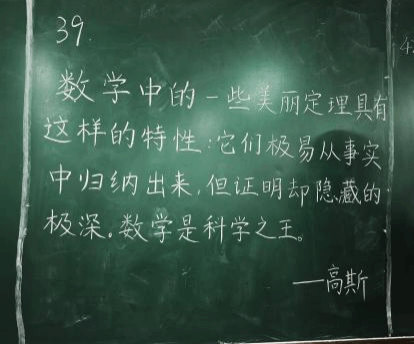 39.
数学中的一些美丽定理具有
这样的特性:它们极易从事实
中归纳出来,但证明却隐藏的
极深。数学是科学之王。
—高斯